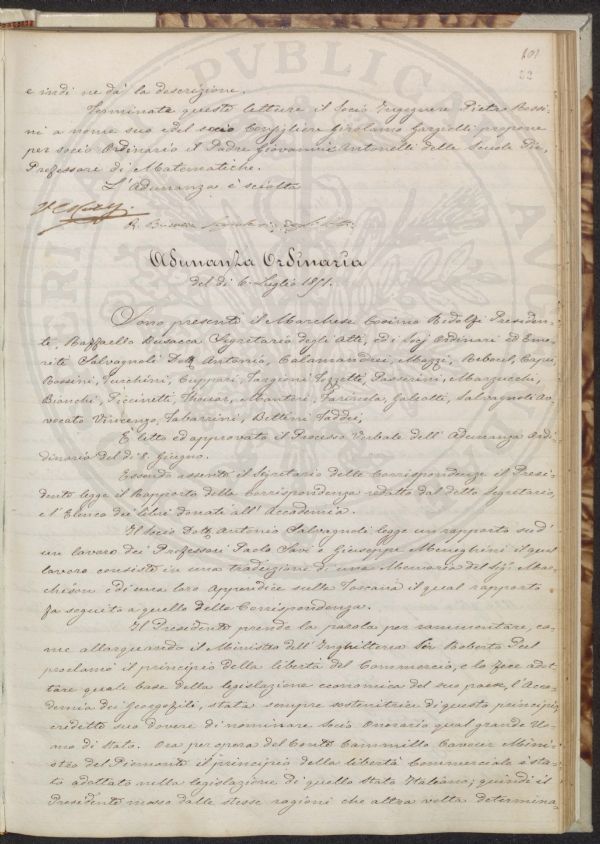 101
22
e indi ne dà la descrizione.
Terminate queste letture il Socio Ingegnere Pietro Rossi-
ni a nome suo e del socio Consigliere Girolamo Gargiolli propone
per socio Ordinario il Padre Giovanni Antonelli delle Scuole Pie,
Professore di Matematiche.
L'Adunanza è sciolta
R. Busacca
Adunanza Ordinaria
del dì 6. Luglio 1851.
Sono presenti il Marchese Cosimo Ridolfi Presiden-
te, Raffaello Busacca Segretario degli Atti, ed i Socj Ordinari ed Eme-
riti Salvagnoli Dott. Antonio, Calamandrei, Mazzi, Reboul, Capei
Rossini, Turchini, Cuppari, Targioni Tozzetti, Passerini, Marzucchi,
Bianchi, Piccinetti, Thouar, Mantori, Farinola, Galeotti, Salvagnoli Av-
vocato Vincenzo, Tabarrini, Bettini Taddei,
È letto ed approvato il Processo Verbale dell'Adunanza Ord-
dinaria del dì 8. Giugno.
Essendo assente il Segretario delle Corrispondenze il Presi-
dente legge il Rapporto della Corrispondenza redatto dal detto Segretario,
e l'Elenco dei libri donati all'Accademia.
Il Socio Dott. Antonio Salvagnoli legge un rapporto sud'
un lavoro dei Professori Paolo Savi e Giuseppe Meneghini il qual
lavoro consiste in una traduzione di una Memoria del Sig. Mur-
chison e di una loro Appendice sulla Toscana il qual rapporto
fa seguito a quello della Corrispondenza.
Il Presidente prende la parola per rammentare, co-
me allorquando il Ministro dell'Inghilterra Sir Roberto Peel
proclamò il principio della libertà del Commercio, e lo fece adot-
tare quale base della legislazione economica del suo paese, l'Acca-
demia dei Georgofili, stata sempre sostenitrice di questo principio,
credette suo dovere di nominare Socio Onorario quel grande Uo-
mo di Stato. Ora per opera del Conte Cammillo Cavour Mini-
stro del Piemonte il principio della libertà Commerciale è sta-
to adottato nella legislazione di quello Stato Italiano; quindi il
Presidente mosso dalle stesse ragioni che altra volta determina-